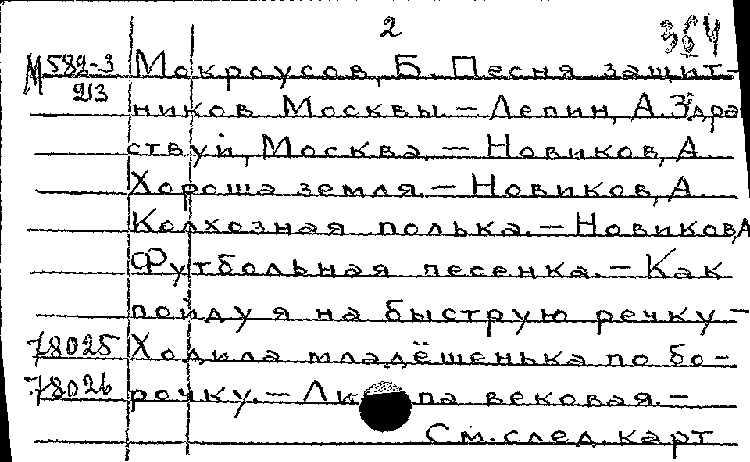 2 364
М 582-3 Мокроусов, Б. Песня защит-
213 ников Москвы. – Лепин, А. Здра
ствуй, Москва. – Новиков, А.
Хороша земля. – Новиков, А.
Колхозная полька. – Новиков, А
Футбольная песенка. – Как
пойду я на быструю речку –
78025 Ходила младёшенька по бо-
78026 рочку. – па вековая. –
См. след. карт